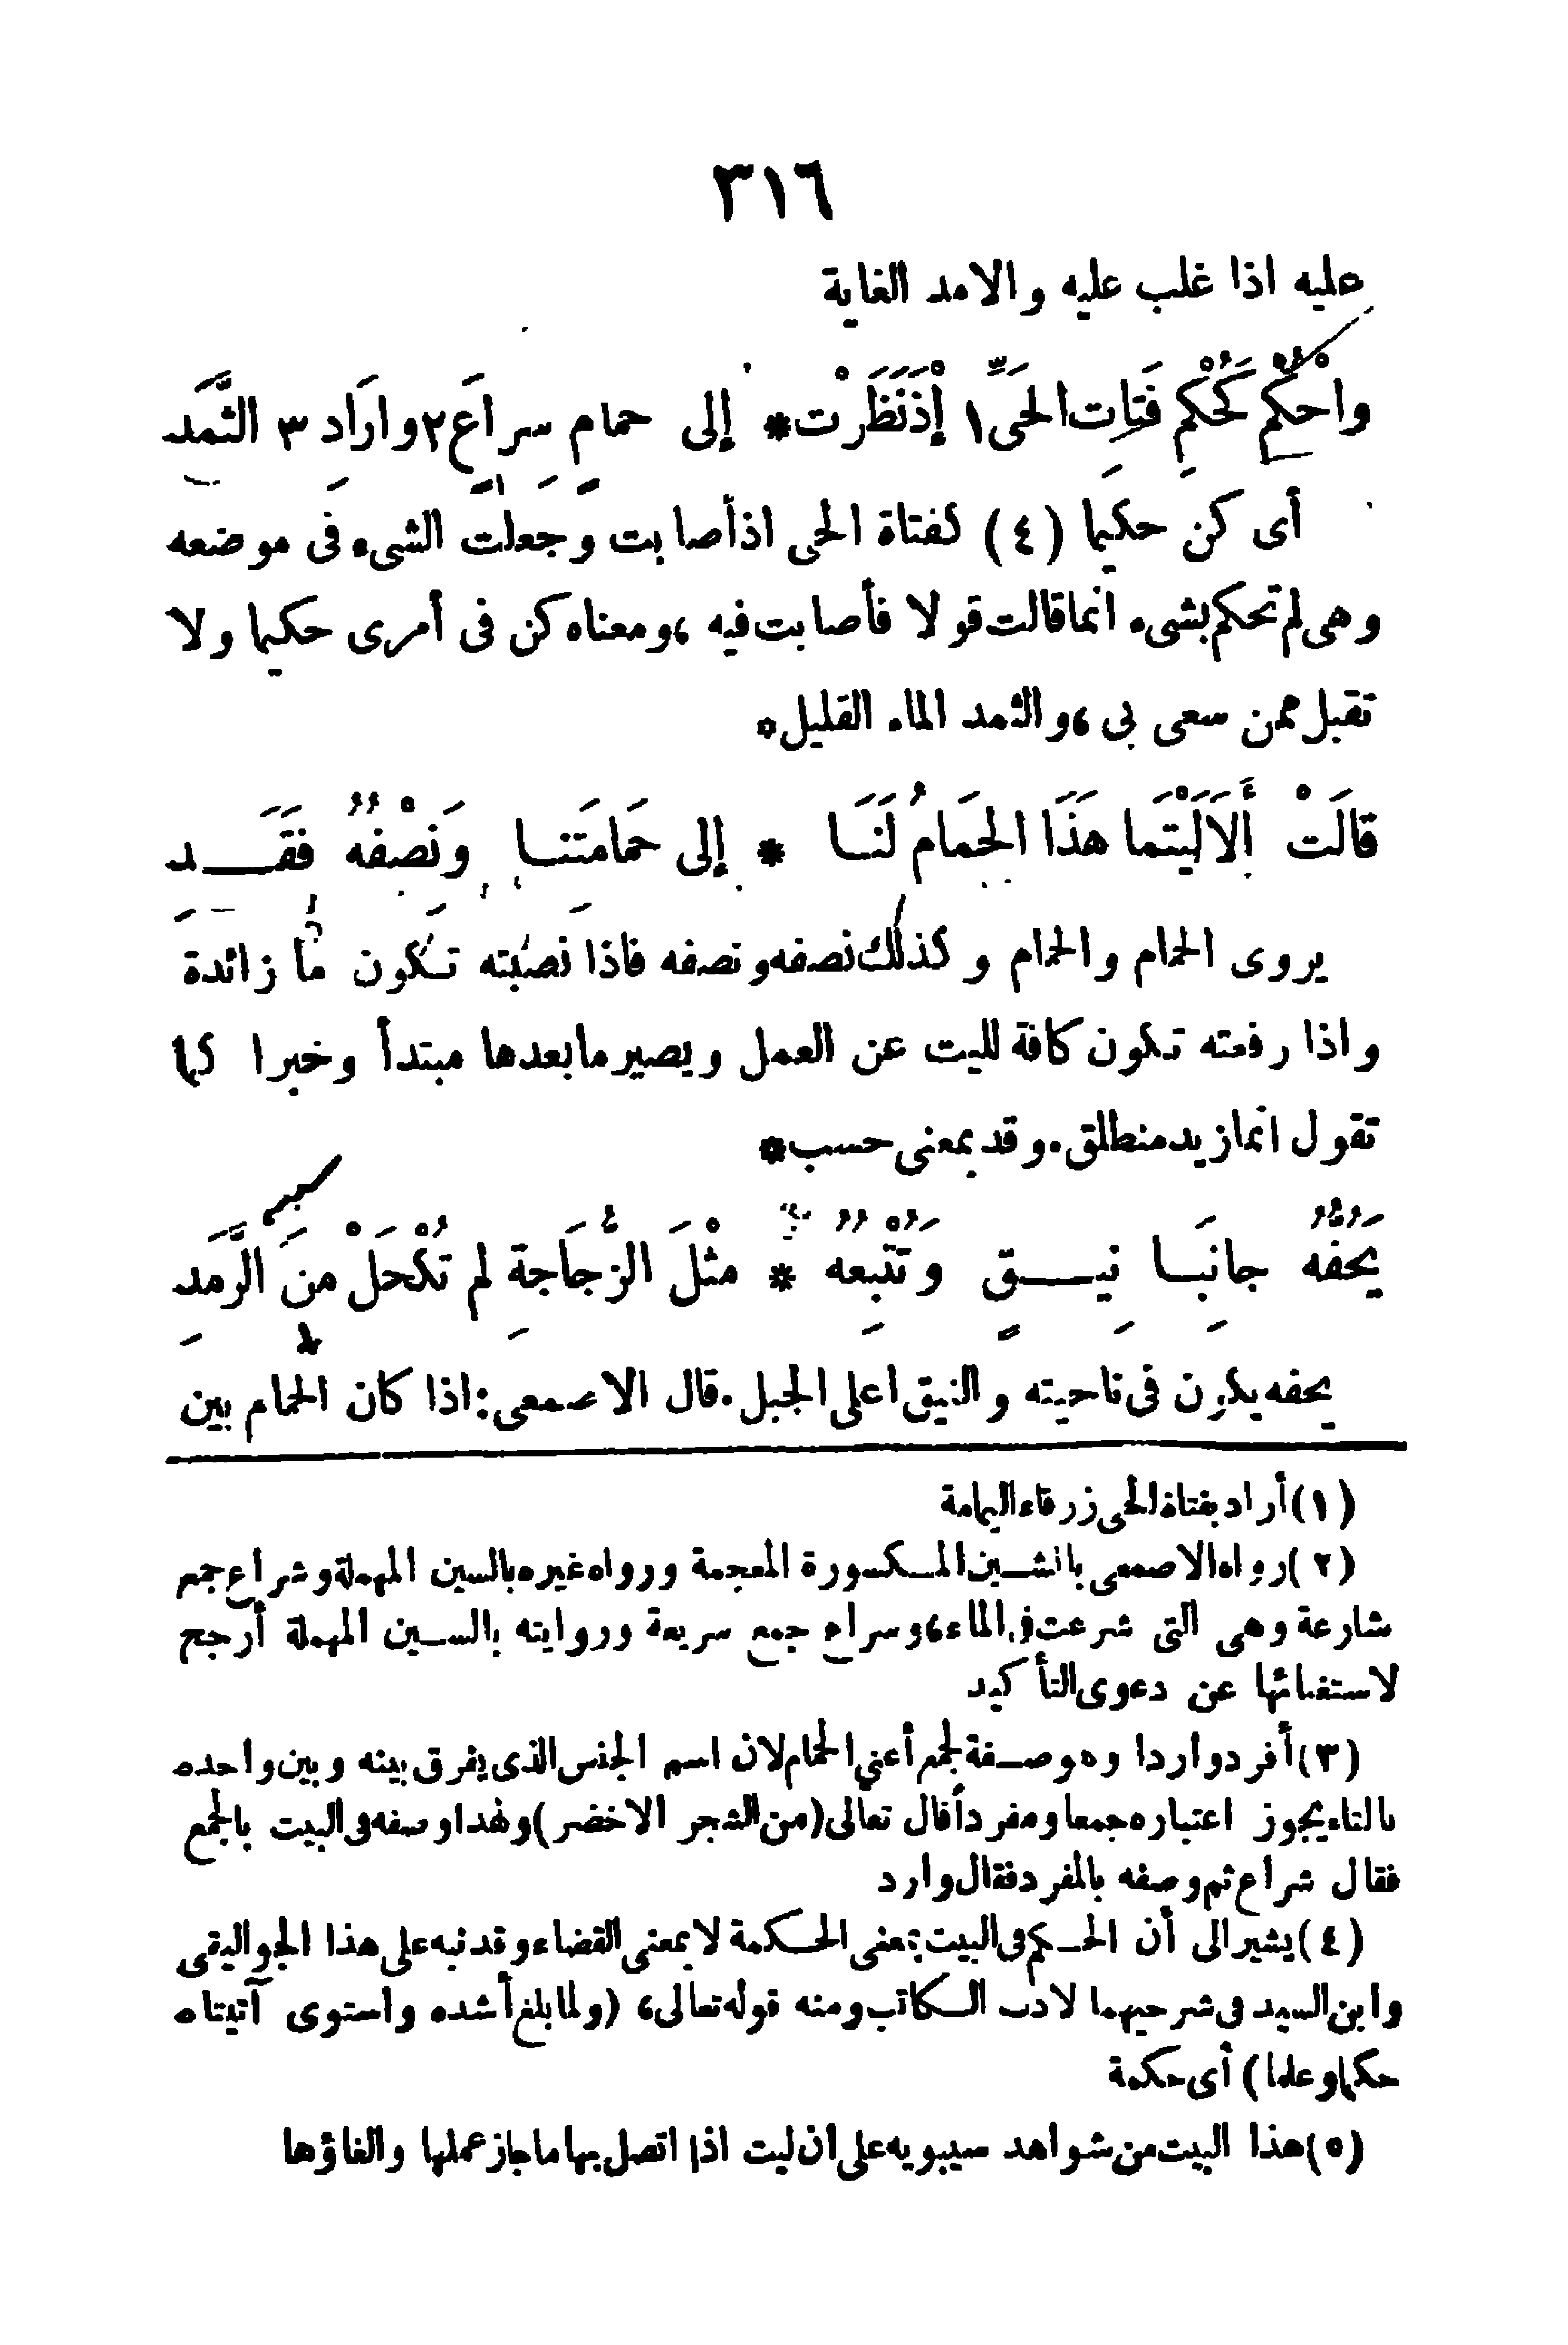 ٣١٦
عليه اذا غلب عليه والامد الغاية
واحْكُمْ كَحُكْمِ فَتَاِت الحَىِّ ١ إِذْ نَظَرَتْ * إلى حمامٍ سِراَعٍ ٢ وارَادِ ٣ الثَّمَدِ
أى كن حكيما (٤) كفتاة الحى اذأصابت وجعلت الشىء فى موضعه
وهى لم تحكم بشىء انما قالت قولا فأصابت فيه ،ومعناه كن فى أمرى حكيما ولا
تقبل ممن سعى بى ،والثمد الماء القليل *
قالَتْ أَلَا لَيْتَما هَذَا الحَمَامُ لَنَـا * إلى حَمَامَتَنِـا وَنِصْفُهُ فَقَـــدِ
يروى الحمام والحمام وكذلك نصفه ونصفه فاذا نصبته تكون ما زائدة
واذا رفعته تكون كافة لليت عن العمل ويصير مابعدها مبتدأ وخبرا كما
تقول انما زيد منطلق.وقد بمعنى حسب*
يَحُفُّهُ جانِبَـا نِيـــقٍ وَتُتْبِعُهُ * مثْلَ الزُّجَاجَةِ لم تُكْحَلْ منَ الرَّمَدِ
يحفه يكون فى ناحيته والنيق اعلى الجبل.قال الاصمعى:اذا كان الحمام بين
(١)أراد بفتاة الحى زرقاء اليمامة
(٢)رواه الاصمعى بالشـين المـكسورة المعجمة ورواه غيره بالسين المهملة وشراع جمع
شارعة وهى التى شرعت فى الماء،وسراع جمع سريعة وروايته بالسـين المهملة أرجح
لاستغنائها عن دعوى التأكيد
(٣)أفرد واردا وهو صـفة لجمع أعني الحمام لان اسم الجنس الذى يفرق بينه وبين واحده
بالتاء يجوز اعتباره جمعا ومفرداً قال تعالى(من الشجر الاخضر)ولهذا وصفه فى البيت بالجمع
فقال شراع ثم وصفه بالمفرد فقال وارد
(٤)يشير الى أن الحـكم فى البيت بمعنى الحـكمة لا بمعنى القضاء وقد نبه على هذا الجواليقى
وابن السيد فى شرحيهما لادب الـكاتب ومنه قوله تعالى، (ولما بلغ أشده واستوى آتيناه
حكما وعلما) أى حكمة
(٥)هذا البيت من شواهد سيبويه على ان ليت اذا اتصل بها ما جاز عملها والغاؤها